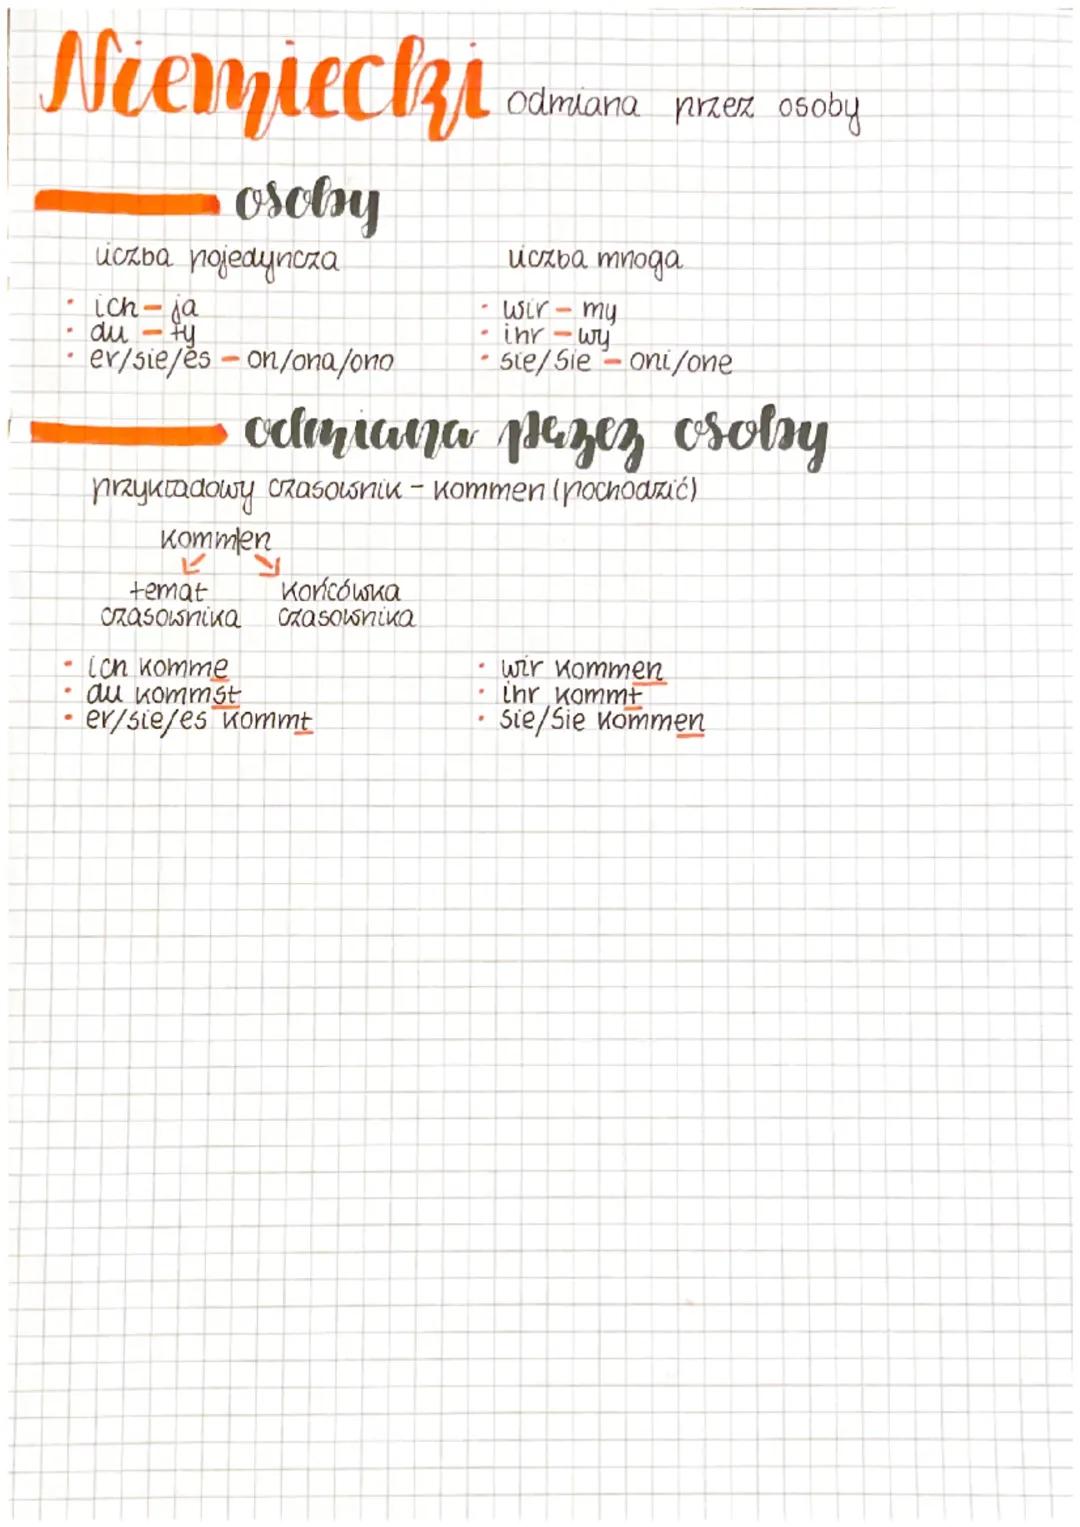 Niemiecki odmiana przez osoby
osoby
liczba pojedyncza
liczba mnoga
• ich – ja
• du – ty
• er/sie/es – on/ona/ono
• wir – my
• ihr – wy
• sie/Sie – oni/one
odmiana przez osoby
przykładowy czasownik – kommen (pochodzić)
komm|en
temat
czasownika
końcówka
czasownika
• ich komme
• du kommst
• er/sie/es kommt
• wir kommen
• ihr kommt
• sie/Sie kommen